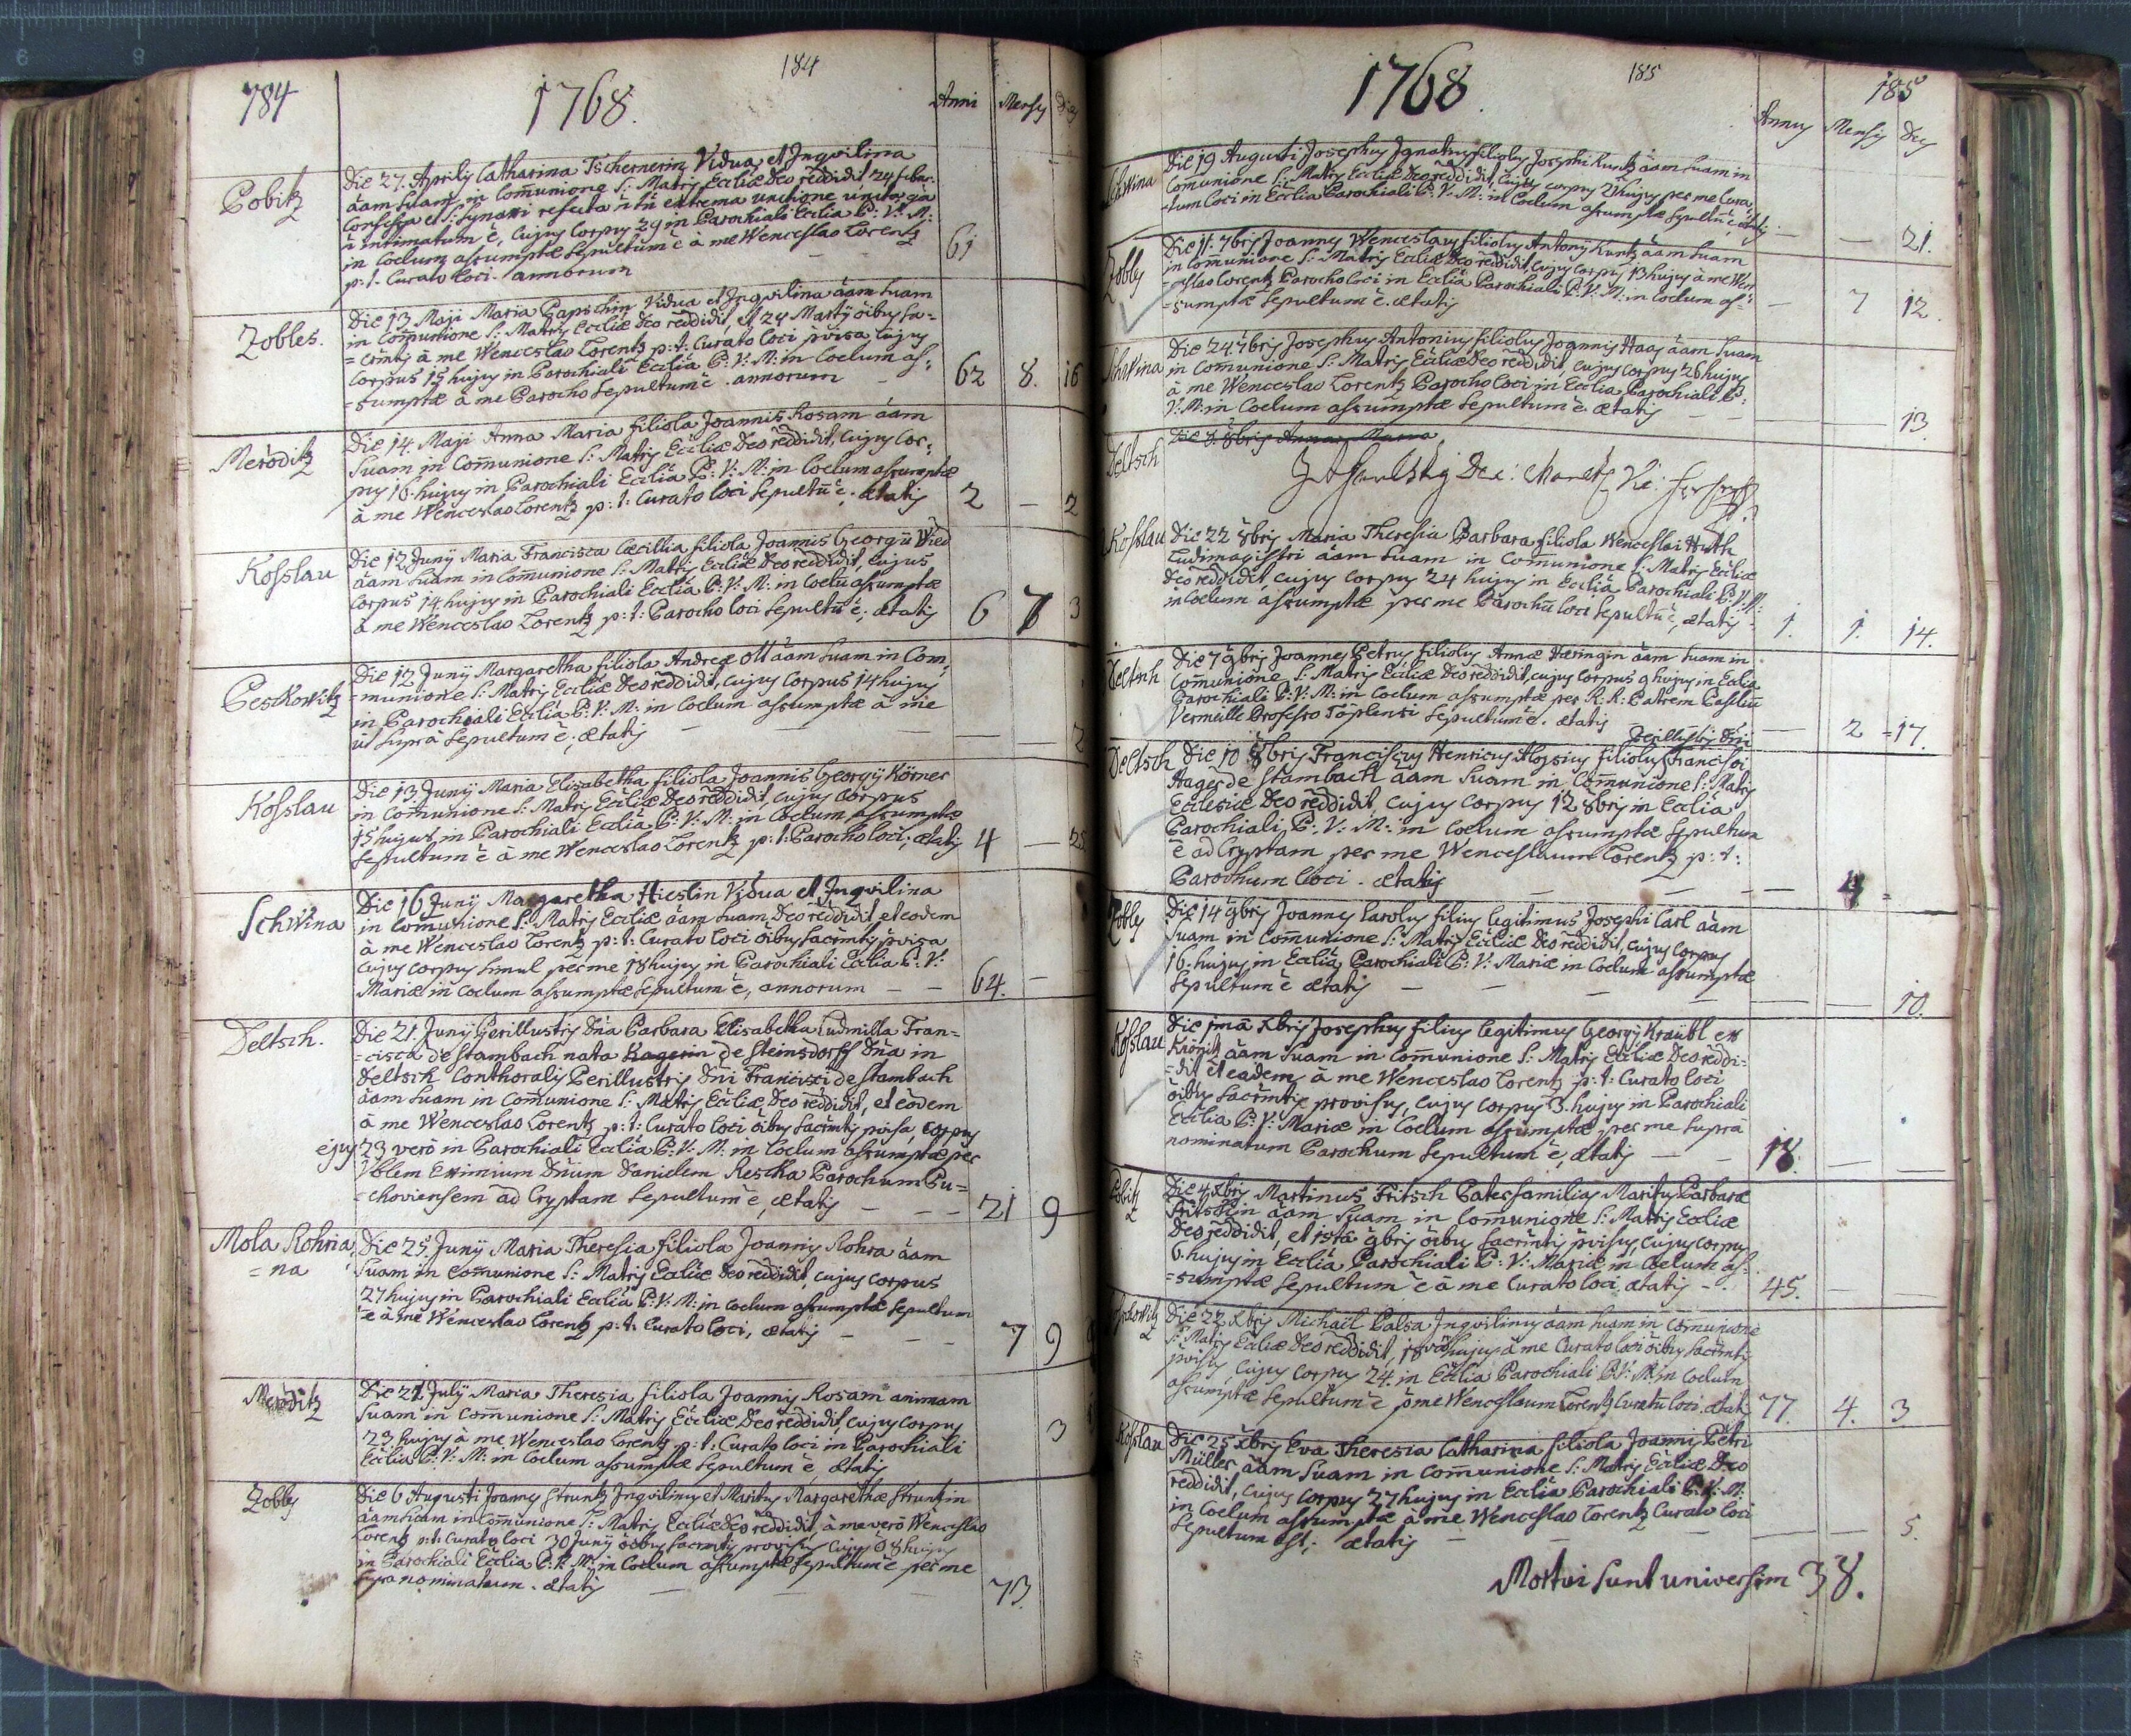 184
184
1768.
Anni Mensy Dies
Pobitz
Die 27. Aprily Catharina Tschernerin Vidua et Inqvilina
äam suam in Com̄unione S: Matry Eccliæ Deo reddidit 24 febr:
Confessa et S: Synaxi refecta extrema unctione
intimatum ē, Cujuy Corpuy 29 in Parochiali Ecclia B: V: M:
in Coelum assumptæ sepultum ē à me Wenceslao Lorentz
p: t: Curato loci. annorum 61
Zobles.
Die 13 Maji Maria Papschin Vidua et Inqvilina äam suam
in Com̄unione S: Matry Eccliæ Deo reddidit, et 24 Martÿ öibuy Sa=
=cōmtj à me Wenceslao Lorentz p: t: Curato loci pvisa Cujuy
Corpus 15 hujuy in Parochiali Ecclia B: V: M: in Coelum as=
=sumptæ à me Parocho sepultum ē. annorum 62 8. 16
Meröditz
Die 14. Maji Anna Maria filiola Joannis Rosam äam
Suam in Com̄unione S: Matry Eccliæ Deo reddidit, Cujuy Cor=
puy 16. hujuy in Parochiali Ecclia B: V: M: in Coelum assumptæ
à me Wenceslao Lorentz p: t: Curato loci Sepultū ē. ætatiy 2 — 2
Kosslau
Die 12 Junÿ Maria Francisca Cæcillia filiola Joannis Georgii Wied
äam suam in Com̄unione S: Matry Eccliæ Deo reddidit, Cujus
Corpus 14 hujuy in Parochiali Ecclia B: V: M: in Coelū assumptæ
à me Wenceslao Lorentz p: t: Parocho loci Sepultū ē, ætatiy 6 7 3
Peskowitz
Die 12 Junÿ Margaretha filiola Andreæ Ott äam suam in Com=
=munione S: Matry Eccliæ Deo reddidit, Cujuy Corpus 14 hujuy
in Parochiali Ecclia B: V: M: in Coelum assumptæ à me
ut suprà Sepultum ē, ætatiy — — 2
Kosslau
Die 13. Junÿ Maria Elisabetha filiola Joannis Georgÿ Körner
in Com̄unione S: Matry Eccliæ Deo reddidit, Cujuy Corpus
15 hujus in Parochiali Ecclia B: V: M: in Coelum assumptæ
Sepultum ē à me Wenceslao Lorentz p: t: Parocho loci, ætatiy 4 — 25
Schwina
Die 16 Junÿ Margaretha Hieslin Vidua et Inqvilina
in Com̄unione S: Matry Eccliæ äam suam, Deo reddidit et eodem
à me Wenceslao Lorentz p: t: Curato loci öibuy Sacrīntiy pvisa
Cujuy Corpuy simul per me 18 hujuy in Parochiali Ecclia B: V:
Mariæ in Coelum assumptæ Sepultum ē, annorum — — 64. —
Deltsch.
Die 21. Junÿ Perillustriy Dña Barbara Elisabetha Ludmilla Fran=
=cisca de Stambach nata Hagerin de Steinsdorff Dña in
Deltsch Conthoraliy Perillustriy Dñi Francisci de Stambach
äam suam in Com̄unione S: Matry Eccliæ Deo reddidit, et eodem
à me Wenceslao Lorentz p: t: Curato loci öibuy Sacrīntiy pvisa, Corpuy
ejuy 23 verò in Parochiali Ecclia B: V: M: in Coelum assumptæ per
Vblem Eximium Dñum Danielem Reska Parochum Pu=
=choviensem ad Cryptam Sepultum ē, ætatiy — — — 21 9
Mola Rohria
=na
Die 25 Junÿ Maria Theresia filiola Joanniy Rohra äam
Suam in Com̄unione S: Matry Eccliæ Deo reddidit, Cujuy Corpus
27 hujuy in Parochiali Ecclia B: V: M: in Coelum assumptæ Sepultum
ē à me Wenceslao Lorentz p: t: Curato loci, ætatiy — — 7 9
Meröditz
Die 21 Julÿ Maria Theresia filiola Joanniy Rosam animam
Suam in Com̄unione S: Matry Eccliæ Deo reddidit cujuy Corpuy
23 hujuy à me Wenceslao Lorentz p: t: Curato loci in Parochiali
Ecclia B: V: M: in Coelum assumptæ Sepultum ē, ætatiy 3
Zobley
Die 6 Augusti Joanney Struntz Inqvilinuy et Marituy Margarethæ Struntzin
äam suam in Com̄unione S: Matry Eccliæ Deo reddidit, à me verò Wenceslao
Lorentz p: t: Curato loci 30 Junÿ öibuy Sacrīntiy provisuy Cujuy 8 hujuy
in Parochiali Ecclia B: V: M: in Coelum assumptæ Sepultum ē per me
supra nominatum. ætatiy — — 73.
1768.
185
185
Annuy Mensiy Diey
Schwina
Die 19 Augusti Josephuy Ignatiuy filioluy Josephi Kuntz äam suam in
Com̄unione S: Matry Eccliæ Deo reddidit, Cujuy Corpuy 21 hujuy per me Cura=
=tum loci in Ecclia Parochiali B: V: M: in Coelum assumptæ Sepultū ē ætatiy — — 21.
Zobley
Die 11. 7briy Joanney Wenceslauy filioluy Antonÿ Kuntz äam suam
in Com̄unione S: Matriy Eccliæ Deo reddidit, Cujuy Corpuy 13 hujuy à me Wen=
=ceslao Lorentz Parocho loci in Ecclia Parochiali B: V: M: in Coelum as=
=sumptæ Sepultum ē. ætatiy — 7 12.
Schwina
Die 24 7briy Josephuy Antoniuy filioluy Joanniy Haas äam suam
in Com̄unione S: Matriy Eccliæ Deo reddidit, Cujuy Corpuy 26 hujuy
à me Wenceslao Lorentz Parocho loci in Ecclia Parochiali B:
V: M: in Coelum assumptæ Sepultum ē. ætatiy — — 13.
Deltsch
Die 7. 8briy Anna Maria
Kosslau
Die 22 8briy Maria Theresia Barbara filiola Wenceslai Huth
Ludimagistri äam suam in Com̄unione S: Matriy Eccliæ
Deo reddidit cujuy Corpuy 24 hujuy in Ecclia Parochiali B: V: M:
in Coelum assumptæ per me Parochū loci Sepultū ē, ætatiy 1. 1. 14.
Deltsch
Die 7 9briy Joanney Petruy filioluy Annæ Häringin äam suam in
Com̄unione S: Matriy Eccliæ Deo reddidit, cujuy Corpus 9 hujuy in Ecclia
Parochiali B: V: M: in Coelum assumptæ per R: R: Patrem
Vermeille Professo Töplensi Sepultum ē. ætatiy — 2 =17.
Perillustriy Dñi
Deltsch
Die 10 8briy Franciscuy Henricuy Aloysiuy filioluy Francisci
Hager de Stambach äam suam in Com̄unione S: Matriy
Ecclesiæ Deo reddidit, Cujuy Corpuy 12 8briy in Ecclia
Parochiali B: V: M: in Coelum assumptæ Sepultum
ē ad Cryptam per me Wenceslaum Lorentz p: t:
Parochum loci. ætatiy — — — 4 =
Zobley
Die 14 9briy Joanney Caroluy filiuy legitimus Josephi Carl äam
Suam in Com̄unione S: Matriy Eccliæ Deo reddidit, cujuy Corpuy
16. hujuy in Ecclia Parochiali B: V: Mariæ in Coelum assumptæ
Sepultum ē ætatiy — — — — 10.
Kosslau
Die jmâ Xbriy Josephuy filiuy legitimuy Georgÿ Kraübl ex
Krönitz äam suam in Com̄unione S: Matriy Eccliæ Deo reddi=
=dit et eadem à me Wenceslao Lorentz p: t: Curato loci
öibuy Sacrīntiy provisuy, Cujuy Corpuy 3. hujuy in Parochiali
Ecclia B: V: Mariæ in Coelum assumptæ per me supra
nominatum Parochum Sepultum ē, ætatiy — — 18. — —
Pobitz
Die 4 Xbriy Martinus Fritsch Paterfamiliay Marituy Barbaræ
Fritschin äam suam in Com̄unione S: Matriy Eccliæ
Deo reddidit, et istâ 9briy öibuy Sacrīntiy pvisuy, Cujuy Corpuy
6. hujuy in Ecclia Parochiali B: V: Mariæ in Coelum as=
=sumptæ Sepultum ē à me Curato loci. ætatiy — 45.
Peskowitz
Die 22 Xbriy Michaël Balsa Inqviliniuy äam suam in Com̄unione
S: Matriy Eccliæ Deo reddidit, 18vâ hujuy à me Curato loci öibuy Sacrīntiy
pvisuy, Cujuy Corpuy 24. in Ecclia Parochiali B: V: M: in Coelum
assumptæ Sepultum ē p me Wenceslaum Lorentz Curatū loci. ætatiy 77. 4. 3.
Kosslau
Die 25 Xbriy Eva Theresia Catharina filiola Joanniy Petri
Müller äam suam in Com̄unione S: Matriy Eccliæ Deo
reddidit, Cujuy Corpuy 27 hujuy in Ecclia Parochiali B: V: M:
in Coelum assumptæ à me Wenceslao Lorentz Curato loci
Sepultum est; ætatiy — — — 5.
Mortui sunt universim 38.